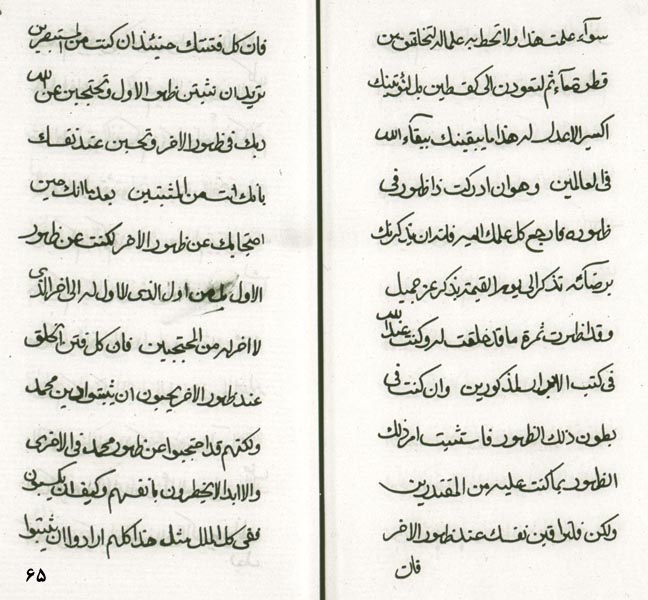 سوآء علمت هذا ولا تحط به علما لتخلقن من
قطرة مآء ثم لتعودن الى بل
اكسير الاعدل له هذا ما يبقينك ببقآء الله
فى العالمين وهو ان ادركت ذا ظهور فى
ظهوره فارجع كل علمك اليه يذكرنك
برضائه تذكرا الى يوم القيمة بذكر عز جميل
وقد اظهرت ثمرة ما قد خلقت له وكنت عند الله
فى كتب الابرار لمذكورين وان كنت فى
بطون ذلك الظهور فاستثبت امر ذلك
الظهور بما كنت عليه من المقتدرين
ولكن فلتراقبن نفسك عند ظهور الاخر
فان
فان كل فتنتك حينئذ ان كنت من المستبصرين
تريد ان تثبتن ظهور الاول وتحتجبن عن الله
ربك فى ظهور الاخر وتحسبن عند نفسك
بانك انت من المثبتين بعد ما انك حين
احتجابك عن ظهور الاخر لكنت عن ظهور
الاول من اول الذى لا اول له الى اخر الذى
لا اخر له من المحتجبين فان كل فتن الخلق
عند ظهور الاخر يحبون ان يثبتوا دين محمد
ولكنهم قد احتجبوا عن ظهور محمد فى الاخرى
والا ابدا لا يخطرون بانفسهم وكيف ان يكسبون
ففى كل الملل مثل هذا كلهم ارادوا ان يثبتوا
۶۵